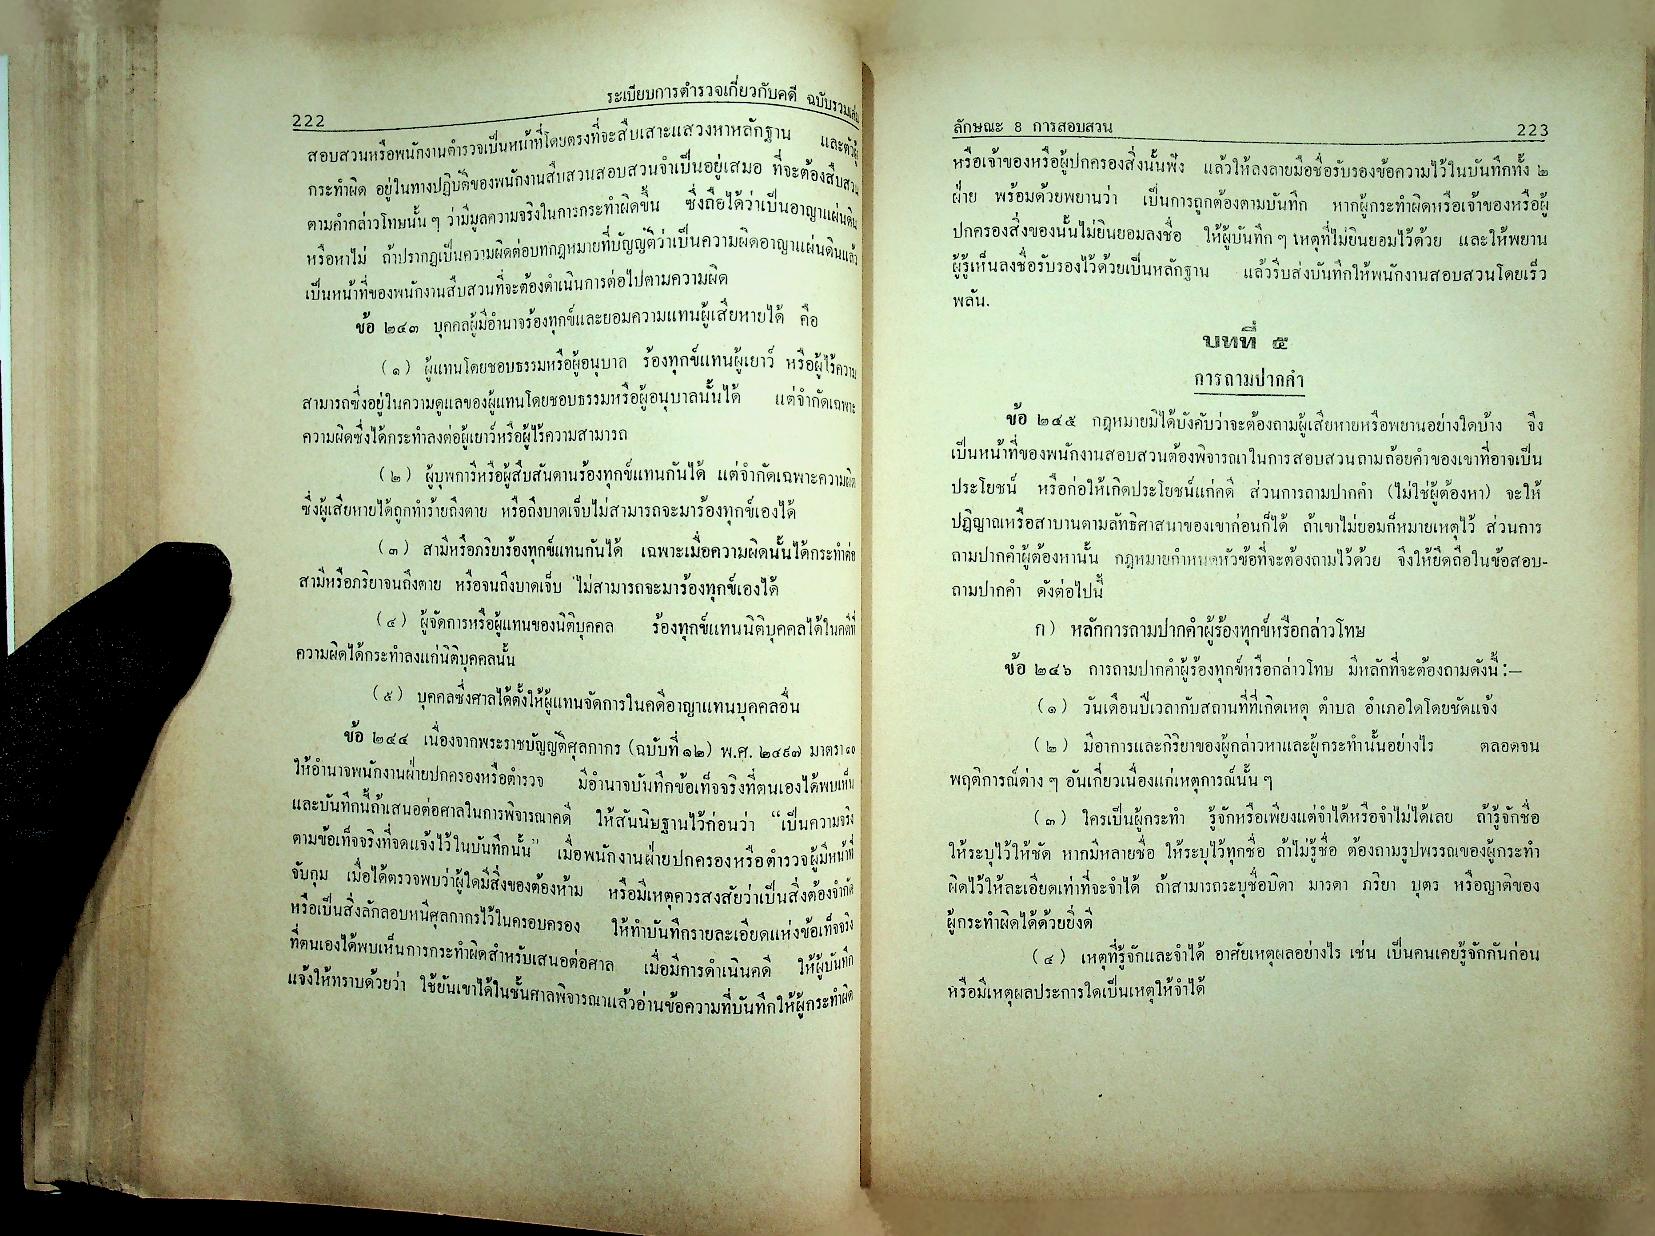 222
ระเบียบการตำรวจเกี่ยวกับคดี ฉบับรวมเล่ม
สอบสวนหรือพนักงานตำรวจเป็นหน้าที่โดยตรงที่จะสืบเสาะแสวงหาหลักฐาน และตัวผู้
กระทำผิด อยู่ในทางปฏิบัติของพนักงานสืบสวนสอบสวนจำเป็นอยู่เสมอ ที่จะต้องสืบสวน
ตามคำกล่าวโทษนั้น ๆ ว่ามีมูลความจริงในการกระทำผิดขึ้น ซึ่งถือได้ว่าเป็นอาญาแผ่นดิน
หรือหาไม่ ถ้าปรากฏเป็นความผิดต่อบทกฎหมายที่บัญญัติว่าเป็นความผิดอาญาแผ่นดินแล้ว
เป็นหน้าที่ของพนักงานสืบสวนที่จะต้องดำเนินการต่อไปตามความผิด
ข้อ ๒๔๓ บุคคลผู้มีอำนาจร้องทุกข์และยอมความแทนผู้เสียหายได้ คือ
(๑) ผู้แทนโดยชอบธรรมหรือผู้อนุบาล ร้องทุกข์แทนผู้เยาว์ หรือผู้ไร้ความ
สามารถซึ่งอยู่ในความดูแลของผู้แทนโดยชอบธรรมหรือผู้อนุบาลนั้นได้ แต่จำกัดเฉพาะ
ความผิดซึ่งได้กระทำลงต่อผู้เยาว์หรือผู้ไร้ความสามารถ
(๒) ผู้บุพการีหรือผู้สืบสันดานร้องทุกข์แทนกันได้ แต่จำกัดเฉพาะความผิด
ซึ่งผู้เสียหายได้ถูกทำร้ายถึงตาย หรือถึงบาดเจ็บไม่สามารถจะมาร้องทุกข์เองได้
(๓) สามีหรือภริยาร้องทุกข์แทนกันได้ เฉพาะเมื่อความผิดนั้นได้กระทำต่อ
สามีหรือภริยาจนถึงตาย หรือจนถึงบาดเจ็บ ไม่สามารถจะมาร้องทุกข์เองได้
(๔) ผู้จัดการหรือผู้แทนของนิติบุคคล ร้องทุกข์แทนนิติบุคคลได้ในคดีที่
ความผิดได้กระทำลงแก่นิติบุคคลนั้น
(๕) บุคคลซึ่งศาลได้ตั้งให้ผู้แทนจัดการในคดีอาญาแทนบุคคลอื่น
ข้อ ๒๔๔ เนื่องจากพระราชบัญญัติศุลกากร (ฉบับที่ ๑๒) พ.ศ. ๒๔๙๗ มาตรา ๑๐
ให้อำนาจพนักงานฝ่ายปกครองหรือตำรวจ มีอำนาจบันทึกข้อเท็จจริงที่ตนเองได้พบเห็น
และบันทึกนี้ถ้าเสนอต่อศาลในการพิจารณาคดี ให้สันนิษฐานไว้ก่อนว่า “เป็นความจริง
ตามข้อเท็จจริงที่จดแจ้งไว้ในบันทึกนั้น” เมื่อพนักงานฝ่ายปกครองหรือตำรวจผู้มีหน้าที่
จับกุม เมื่อได้ตรวจพบว่าผู้ใดมีสิ่งของต้องห้าม หรือมีเหตุควรสงสัยว่าเป็นสิ่งต้องจำกัด
หรือเป็นสิ่งลักลอบหนีศุลกากรไว้ในครอบครอง ให้ทำบันทึกรายละเอียดแห่งข้อเท็จจริง
ที่ตนเองได้พบเห็นการกระทำผิดสำหรับเสนอต่อศาล เมื่อมีการดำเนินคดี ให้ผู้บันทึก
แจ้งให้ทราบด้วยว่า ใช้ยันเขาได้ในชั้นศาลพิจารณาแล้วอ่านข้อความที่บันทึกให้ผู้กระทำผิด
ลักษณะ 8 การสอบสวน
223
หรือเจ้าของหรือผู้ปกครองสิ่งนั้นฟัง แล้วให้ลงลายมือชื่อรับรองข้อความไว้ในบันทึกทั้ง ๒
ฝ่าย พร้อมด้วยพยานว่า เป็นการถูกต้องตามบันทึก หากผู้กระทำผิดหรือเจ้าของหรือผู้
ปกครองสิ่งของนั้นไม่ยินยอมลงชื่อ ให้ผู้บันทึก ๆ เหตุที่ไม่ยินยอมไว้ด้วย และให้พยาน
ผู้รู้เห็นลงชื่อรับรองไว้ด้วยเป็นหลักฐาน แล้วรีบส่งบันทึกให้พนักงานสอบสวนโดยเร็ว
พลัน.
บทที่ ๕
การถามปากคำ
ข้อ ๒๔๕ กฎหมายมิได้บังคับว่าจะต้องถามผู้เสียหายหรือพยานอย่างใดบ้าง จึง
เป็นหน้าที่ของพนักงานสอบสวนต้องพิจารณาในการสอบสวนถามถ้อยคำของเขาที่อาจเป็น
ประโยชน์ หรือก่อให้เกิดประโยชน์แก่คดี ส่วนการถามปากคำ (ไม่ใช่ผู้ต้องหา) จะให้
ปฏิญาณหรือสาบานตามลัทธิศาสนาของเขาก่อนก็ได้ ถ้าเขาไม่ยอมก็หมายเหตุไว้ ส่วนการ
ถามปากคำผู้ต้องหานั้น กฎหมายกำหนดหัวข้อที่จะต้องถามไว้ด้วย จึงให้ยึดถือในข้อสอบ-
ถามปากคำ ดังต่อไปนี้
ก) หลักการถามปากคำผู้ร้องทุกข์หรือกล่าวโทษ
ข้อ ๒๔๖ การถามปากคำผู้ร้องทุกข์หรือกล่าวโทษ มีหลักที่จะต้องถามดังนี้ :—
(๑) วันเดือนปีเวลากับสถานที่ที่เกิดเหตุ ตำบล อำเภอใดโดยชัดแจ้ง
(๒) มีอาการและกิริยาของผู้กล่าวหาและผู้กระทำนั้นอย่างไร ตลอดจน
พฤติการณ์ต่าง ๆ อันเกี่ยวเนื่องแก่เหตุการณ์นั้น ๆ
(๓) ใครเป็นผู้กระทำ รู้จักหรือเพียงแต่จำได้หรือจำไม่ได้เลย ถ้ารู้จักชื่อ
ให้ระบุไว้ให้ชัด หากมีหลายชื่อ ให้ระบุไว้ทุกชื่อ ถ้าไม่รู้ชื่อ ต้องถามรูปพรรณของผู้กระทำ
ผิดไว้ให้ละเอียดเท่าที่จะจำได้ ถ้าสามารถระบุชื่อบิดา มารดา ภริยา บุตร หรือญาติของ
ผู้กระทำผิดได้ด้วยยิ่งดี
(๔) เหตุที่รู้จักและจำได้ อาศัยเหตุผลอย่างไร เช่น เป็นคนเคยรู้จักกันก่อน
หรือมีเหตุผลประการใดเป็นเหตุให้จำได้